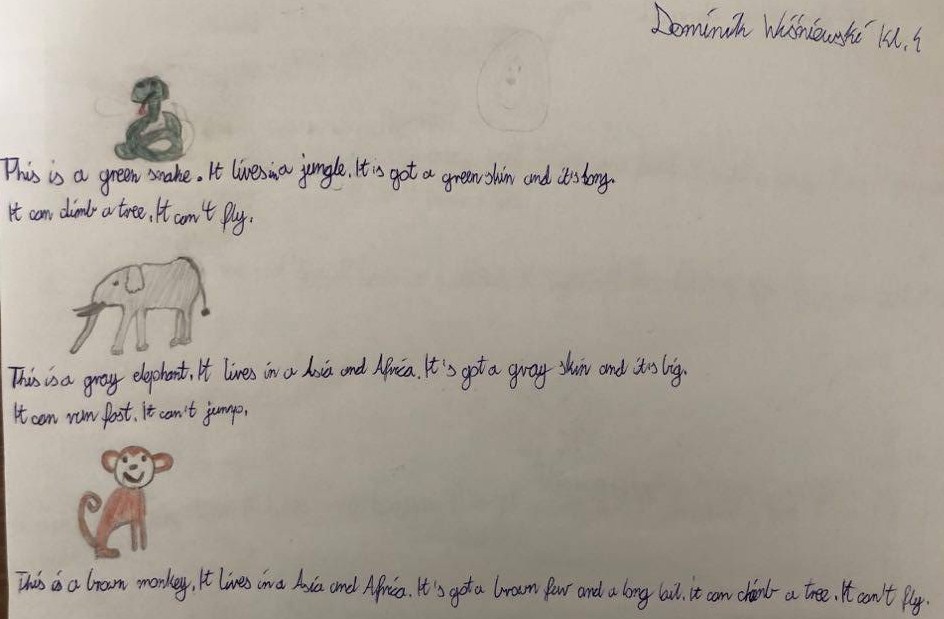 Dominik Wiśniewski kl. 4
This is a green snake. It lives in a jungle. It is got a green skin and it's long.
It can climb a tree. It can't fly.
This is a gray elephant. It lives in a Asia and Africa. It's got a gray skin and it's big.
It can run fast. It can't jump.
This is a brown monkey. It lives in a Asia and Africa. It's got a brown fur and a long tail. it can climb a tree. It can't fly.